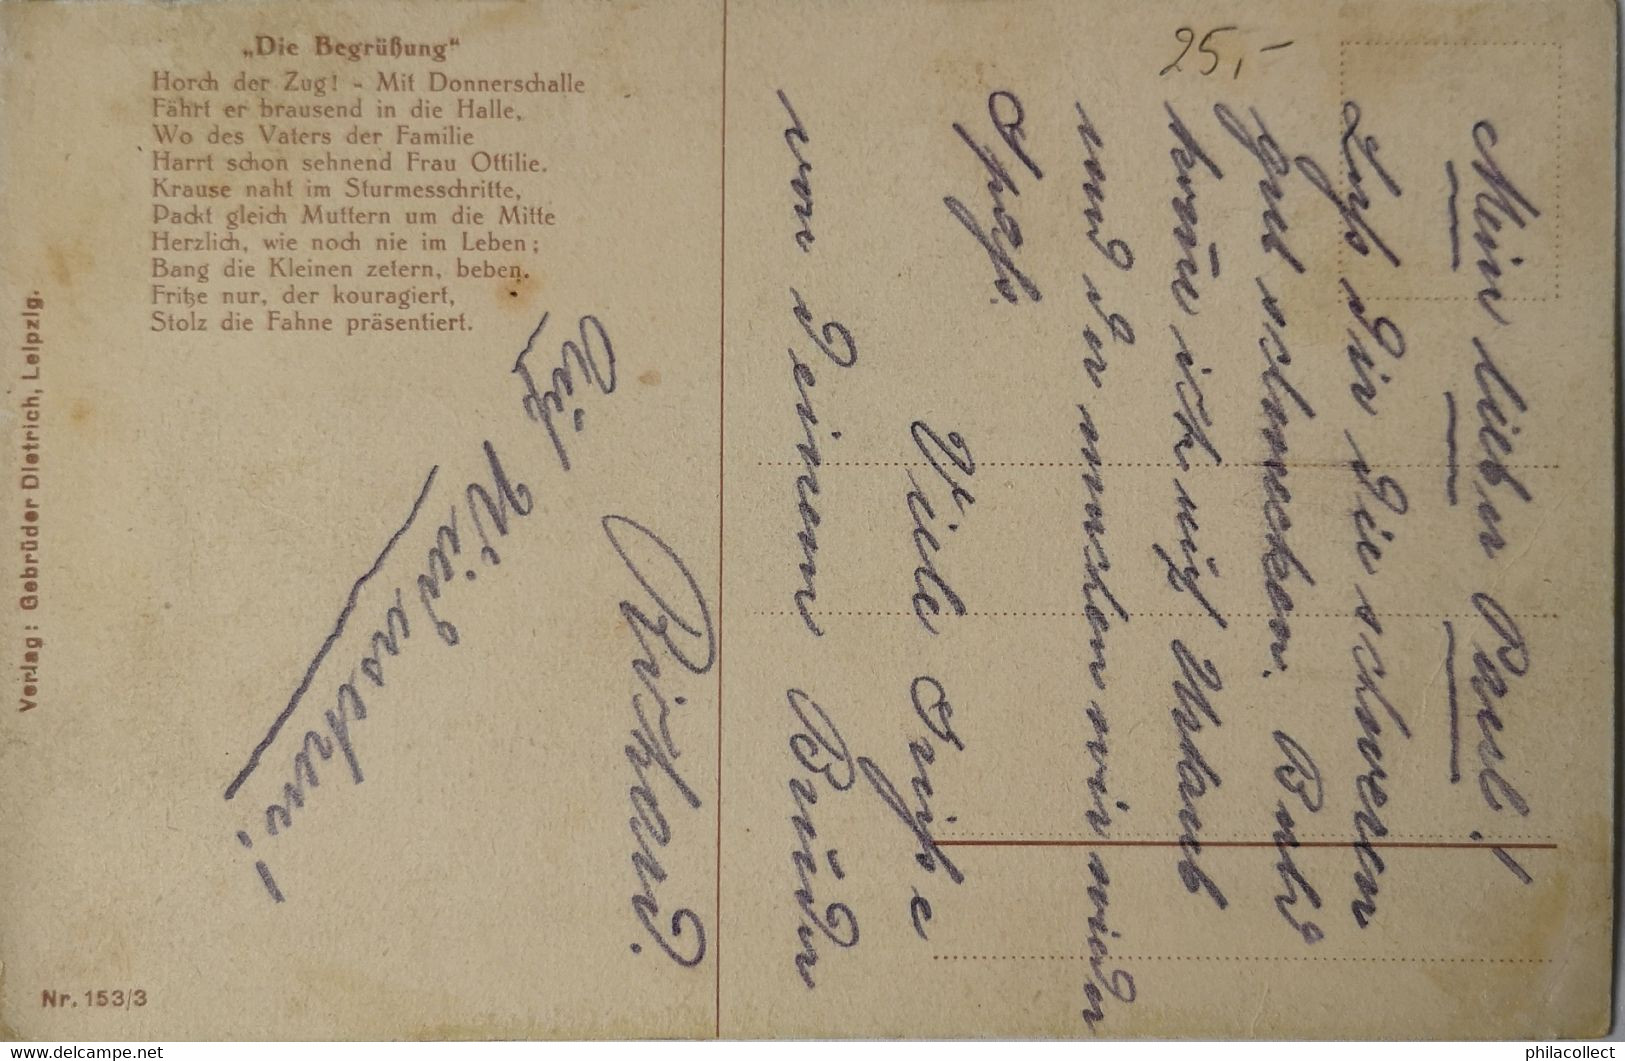 „Die Begrüßung"
Horch der Zug! - Mit Donnerschalle
Fährt er brausend in die Halle,
Wo des Vaters der Familie
Harrt schon sehnend Frau Ottilie.
Krause naht im Sturmesschritte,
Packt gleich Muttern um die Mitte
Herzlich, wie noch nie im Leben;
Bang die Kleinen zetern, beben.
Fritze nur, der kouragiert,
Stolz die Fahne präsentiert.
Verlag: Gebrüder Dietrich, Leipzig.
Nr. 153/3
25,-
Mein lieber Paul!
Laß Dir die schweren
gut schmecken. Bald
komme ich auf Urlaub
und da müssen wir wieder
Spaß.
Viele Grüße
von Deinem Bruder
Richard.
Auf Wiedersehen!
www.delcampe.net
philacollect